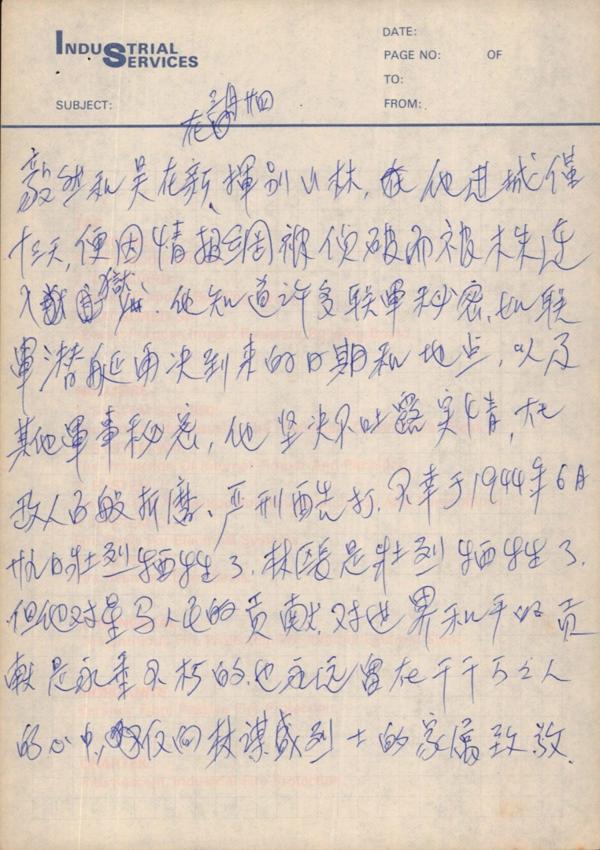 INDUSTRIAL SERVICES
DATE:
PAGE NO: OF
TO:
SUBJECT:
FROM:
在
毅然和吴在新揮别山林,在他进城僅
十三天,便因情报網被侦破而被木朱逮
入獄. 他知道许多联軍秘密,如联
軍潜艇再次到来的日期和地点,以及
其他軍事秘密,他坚决不吐露实情,在
敌人百般折磨、严刑酷打,不幸于1944年6月
廿九日壮烈牺牲了.林是壮烈牺牲了.
但他对星马人民的贡献.对世界和平的贡
献是永垂不朽的.也永远留在千千万万人
的心中,仅向林谋盛烈士的家属致敬.